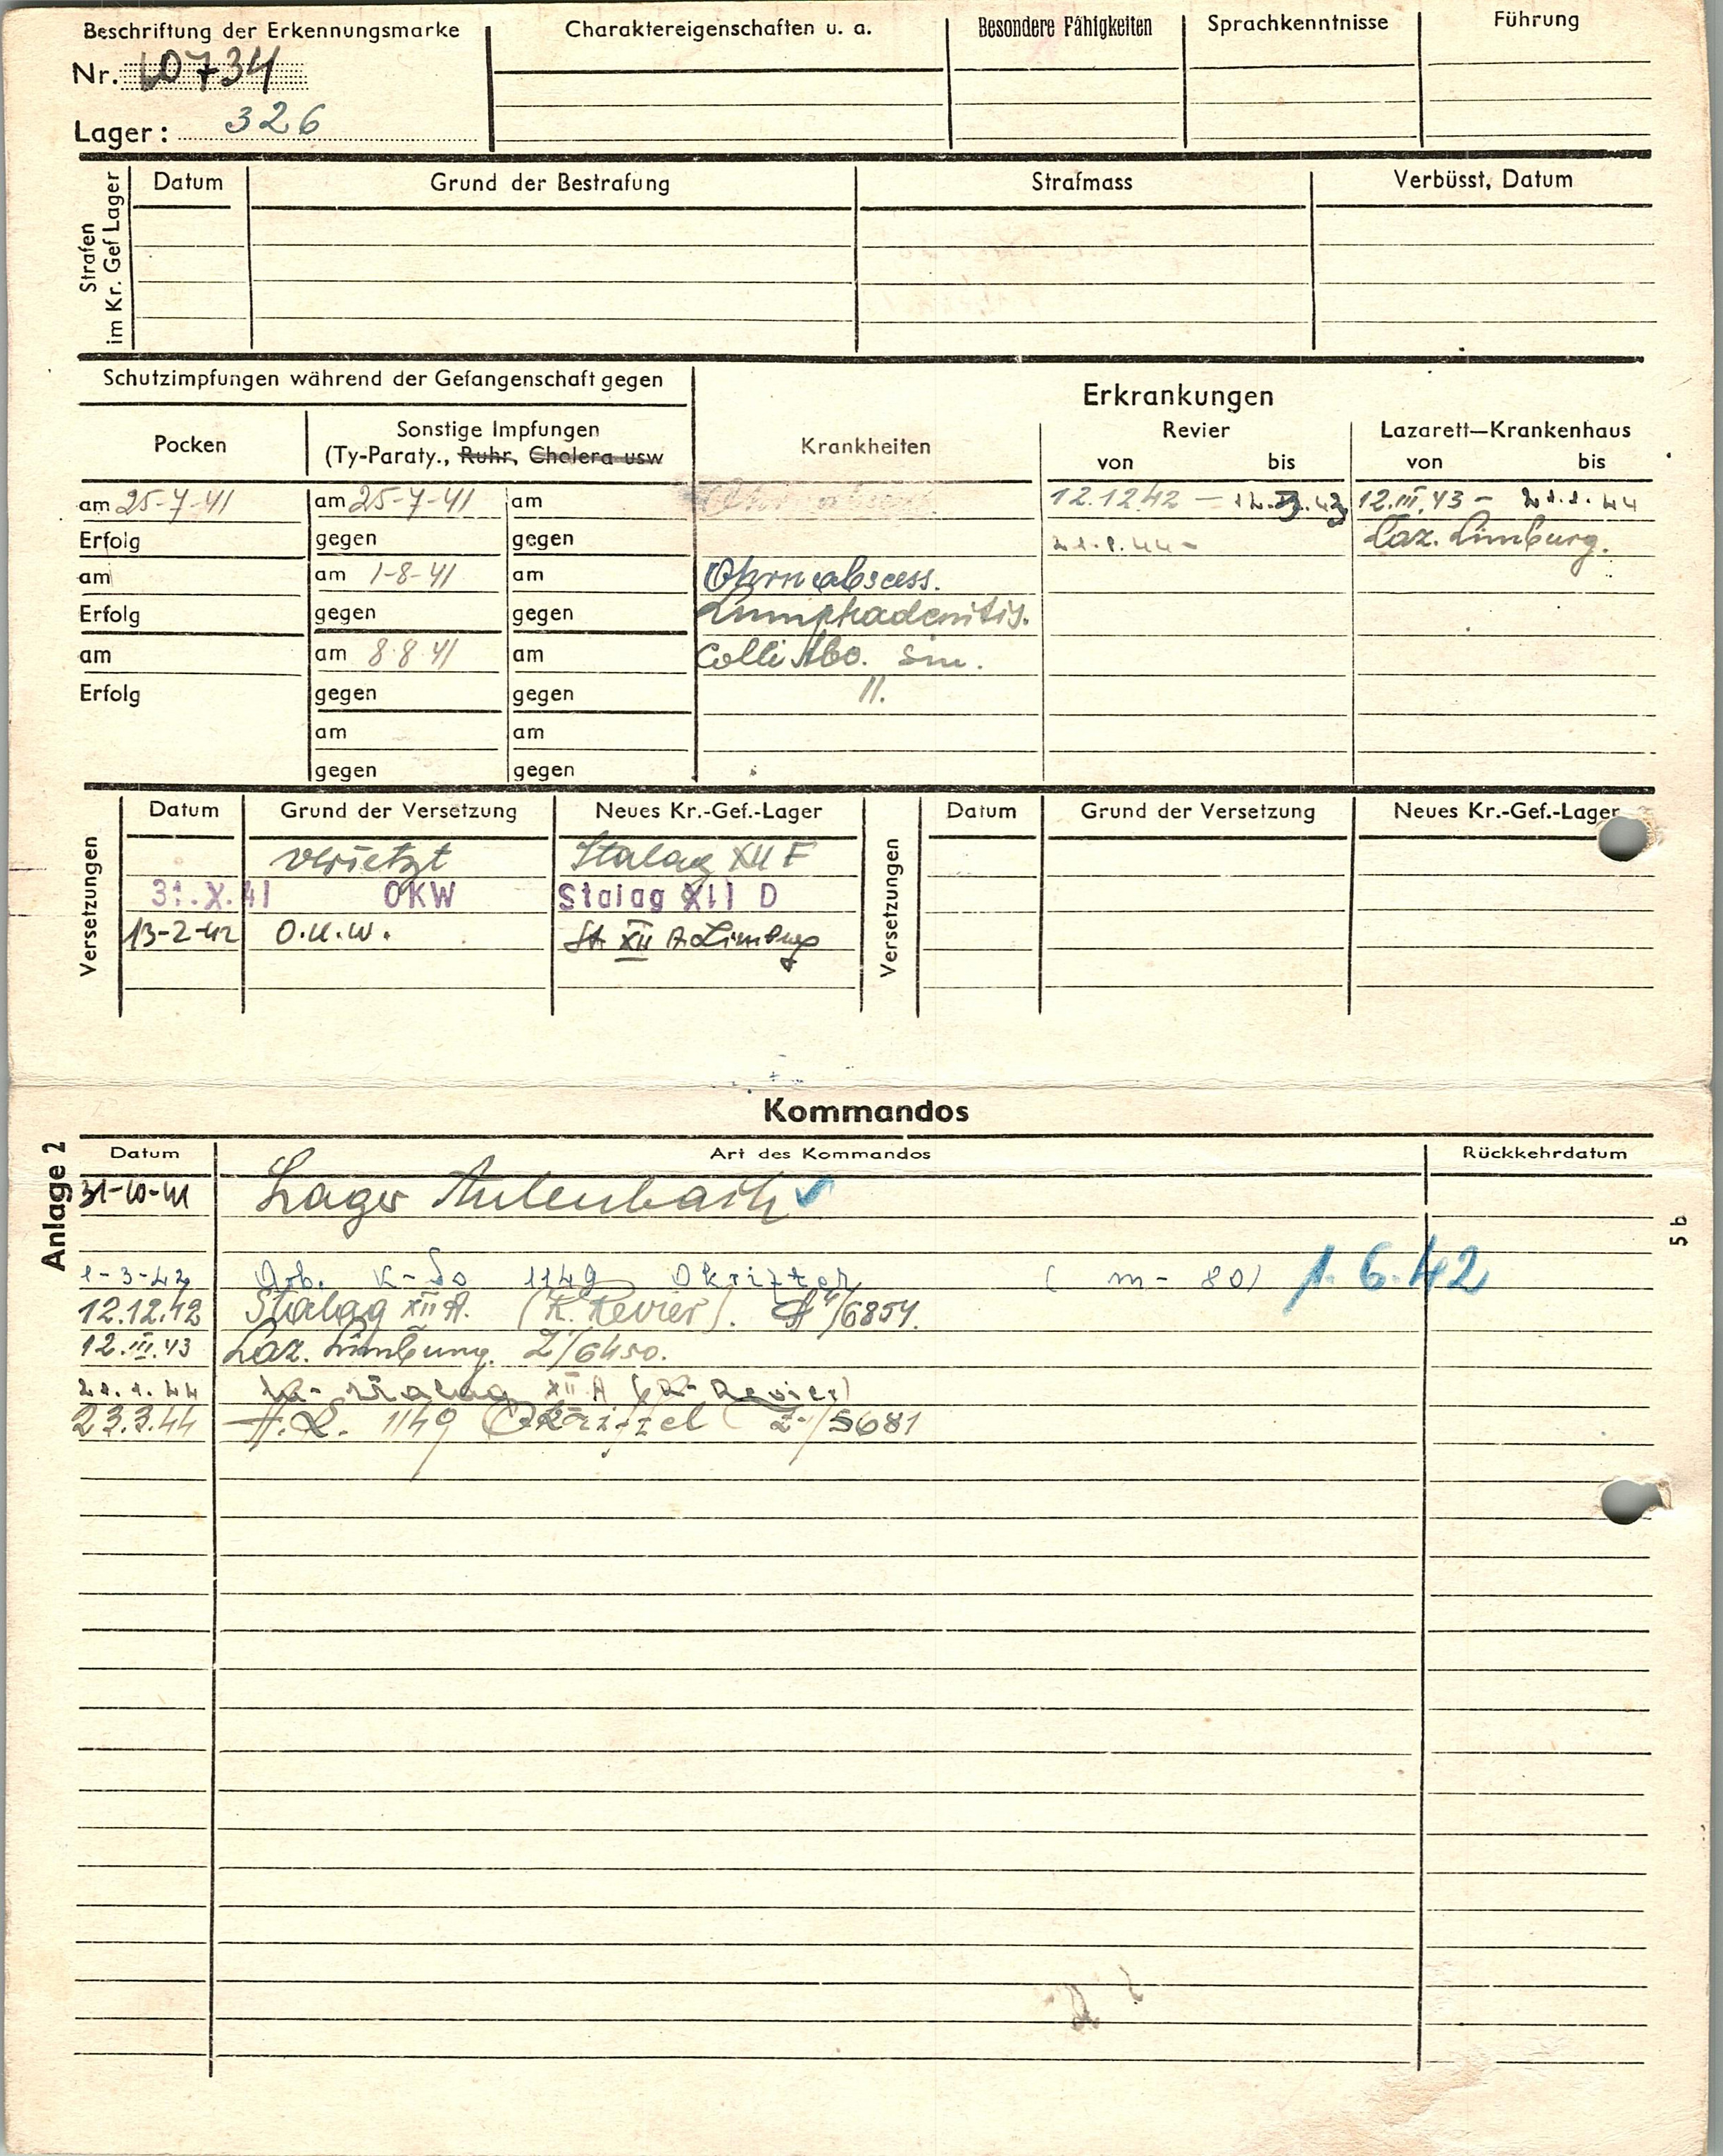 Beschriftung der Erkennungsmarke
Nr. 60734
Lager: 326
Charaktereigenschaften u. a.
Besondere Fähigkeiten
Sprachkenntnisse
Führung
Strafen
im Kr. Gef Lager
Datum Grund der Bestrafung Strafmass Verbüsst, Datum
Schutzimpfungen während der Gefangenschaft gegen
Pocken
Sonstige Impfungen
(Ty-Paraty., Ruhr, Cholera usw
am 25-7-41 am 25-7-41 am
Erfolg gegen gegen
am am 1-8-41 am
Erfolg gegen gegen
am am 8-8-41 am
Erfolg gegen gegen
am am
gegen gegen
Erkrankungen
Krankheiten
Revier
Lazarett—Krankenhaus
von bis von bis
12.12.42 — 12.3.43 12.III.43 - 21.1.44
21.1.44 - Laz. Limburg.
Ohrenabscess.
Lymphadenitis.
Colli Abo. sin.
II.
Versetzungen
Datum Grund der Versetzung Neues Kr.-Gef.-Lager
versetzt Stalag XII F
31.X.41 OKW Stalag XII D
13-2-42 O.K.W. St XII A Limburg
Versetzungen
Datum Grund der Versetzung Neues Kr.-Gef.-Lager
Kommandos
Anlage 2
5 b
Datum Art des Kommandos Rückkehrdatum
31-10-41 Lager
1-3-42 Arb. K-do 1149 Okriftel (m-80) 1.6.42
12.12.42 Stalag XII A. (K. Revier). /6854.
12.III.43 Laz. Limburg. Z/6450.
21.1.44 Stalag XII A (K-Revier)
23.3.44 1149 Okriftel Z./5681